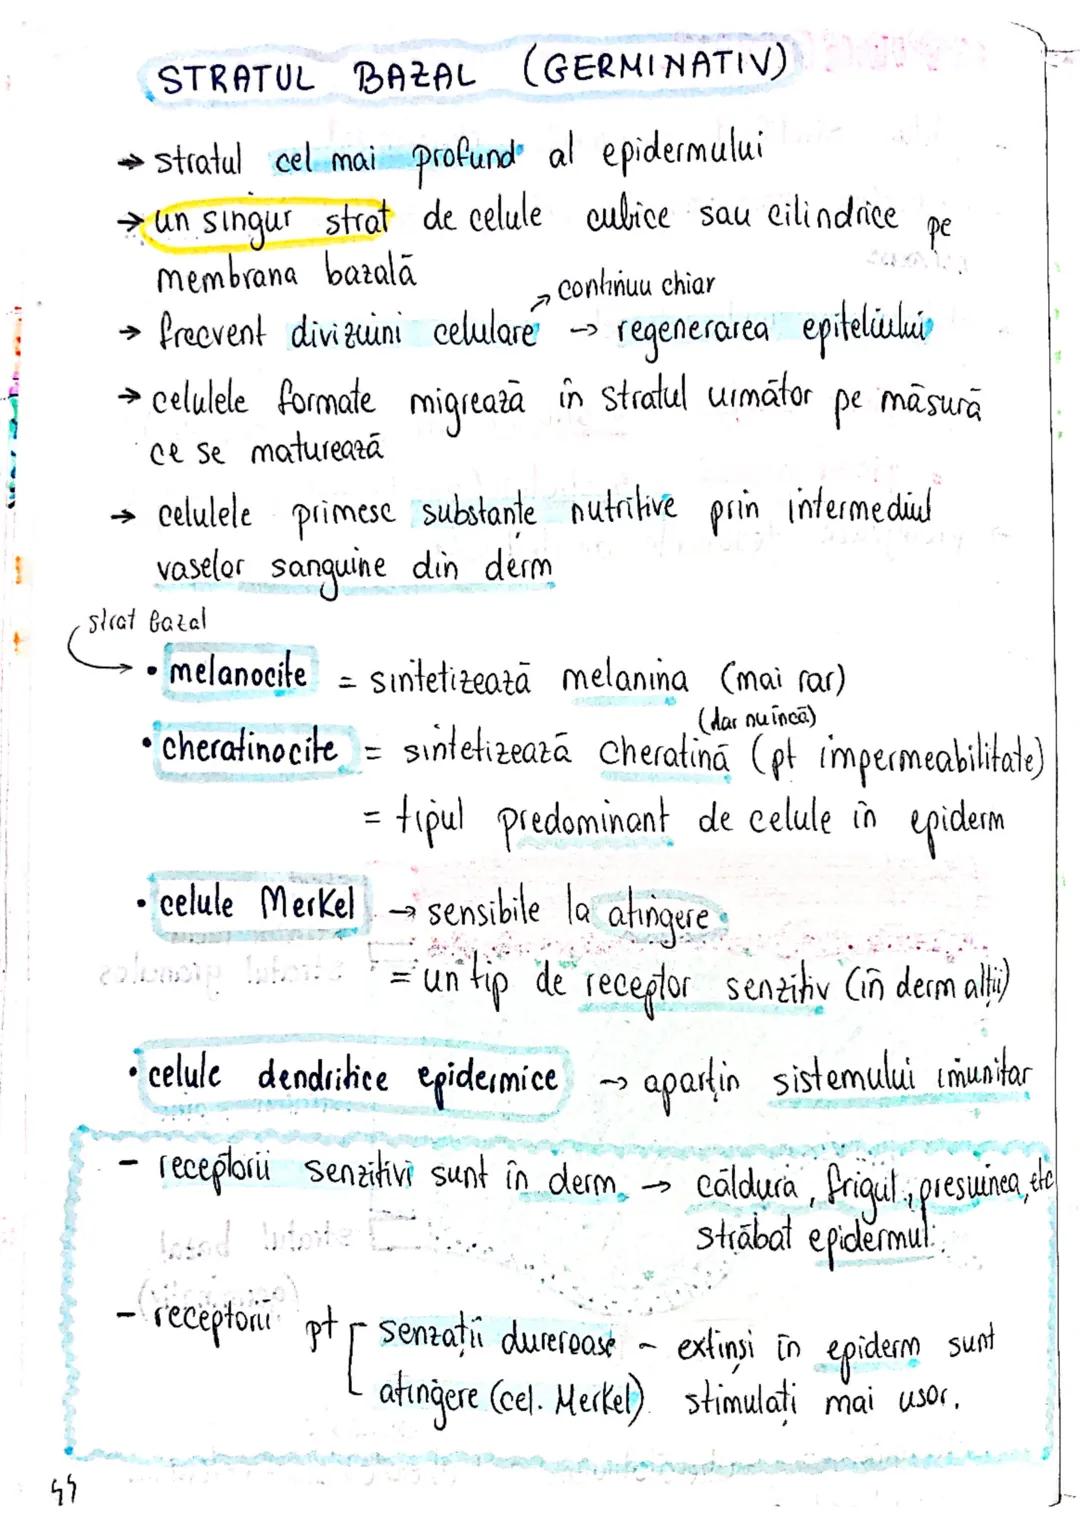 STRATUL BAZAL (GERMINATIV)
→ stratul cel mai profund al epidermului
→ un singur strat de celule cubice sau cilindrice pe
membrana bazală
continuu chiar
→ frecvent diviziuni celulare → regenerarea epiteliului
→ celulele formate migrează în stratul următor pe măsură
ce se maturează
→ celulele primesc substanțe nutritive prin intermediul
vaselor sanguine din derm
strat bazal
• melanocite = sintetizează melanina (mai rar)
(dar nu încă)
• cheratinocite = sintetizează cheratină (pt impermeabilitate)
= tipul predominant de celule în epiderm
• celule Merkel → sensibile la atingere
= un tip de receptor senzitiv (în derm alții)
• celule dendritice epidermice → aparțin sistemului imunitar
- receptorii senzitivi sunt în derm → căldura, frigul, presiunea, etc
străbat epidermul.
- receptorii pt senzații dureroase - extinși în epiderm sunt
atingere (cel. Merkel) stimulați mai ușor.